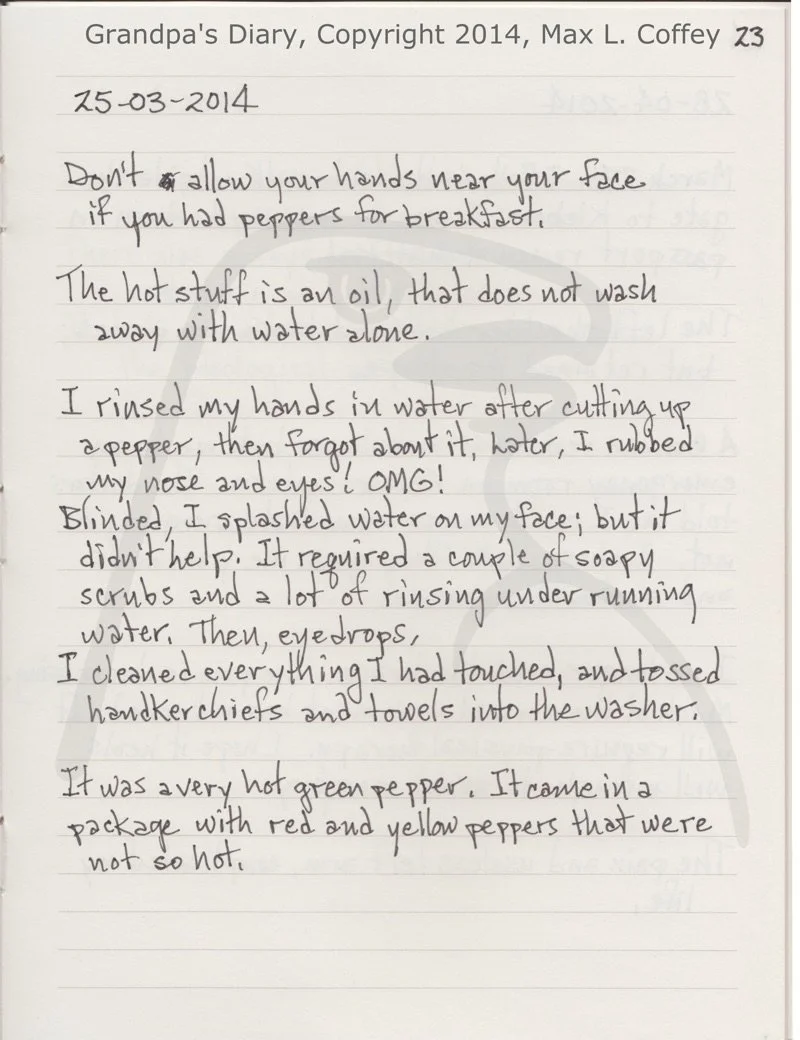 Grandpa's Diary, Copyright 2014, Max L. Coffey 23
25-03-2014
Don't allow your hands near your face
if you had peppers for breakfast.
The hot stuff is an oil, that does not wash
away with water alone.
I rinsed my hands in water after cutting up
a pepper, then forgot about it. Later, I rubbed
my nose and eyes! OMG!
Blinded, I splashed water on my face; but it
didn't help. It required a couple of soapy
scrubs and a lot of rinsing under running
water. Then, eyedrops,
I cleaned everything I had touched, and tossed
handkerchiefs and towels into the washer.
It was a very hot green pepper. It came in a
package with red and yellow peppers that were
not so hot.